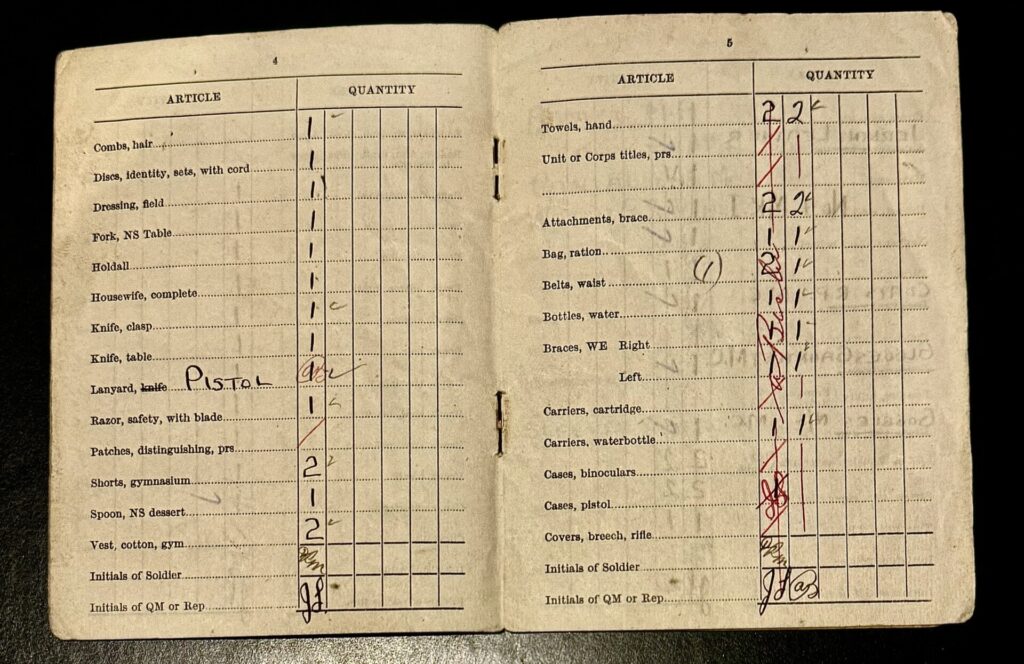 4
ARTICLE QUANTITY
Combs, hair 1
Discs, identity, sets, with cord 1
Dressing, field 1
Fork, NS Table 1
Holdall 1
Housewife, complete 1
Knife, clasp 1
Knife, table 1
Lanyard, knife PISTOL 1
Razor, safety, with blade 1
Patches, distinguishing, prs
Shorts, gymnasium 2
Spoon, NS dessert 1
Vest, cotton, gym 2
Initials of Soldier
Initials of QM or Rep JL
5
ARTICLE QUANTITY
Towels, hand 2 2
Unit or Corps titles, prs
Attachments, brace 2 2
Bag, ration 1 1
Belts, waist (1) 2 1
Bottles, water 1 1
Braces, WE Right 1 1
Left 1 1
Carriers, cartridge
Carriers, waterbottle 1 1
Cases, binoculars
Cases, pistol
Covers, breech, rifle
Initials of Soldier
Initials of QM or Rep JL